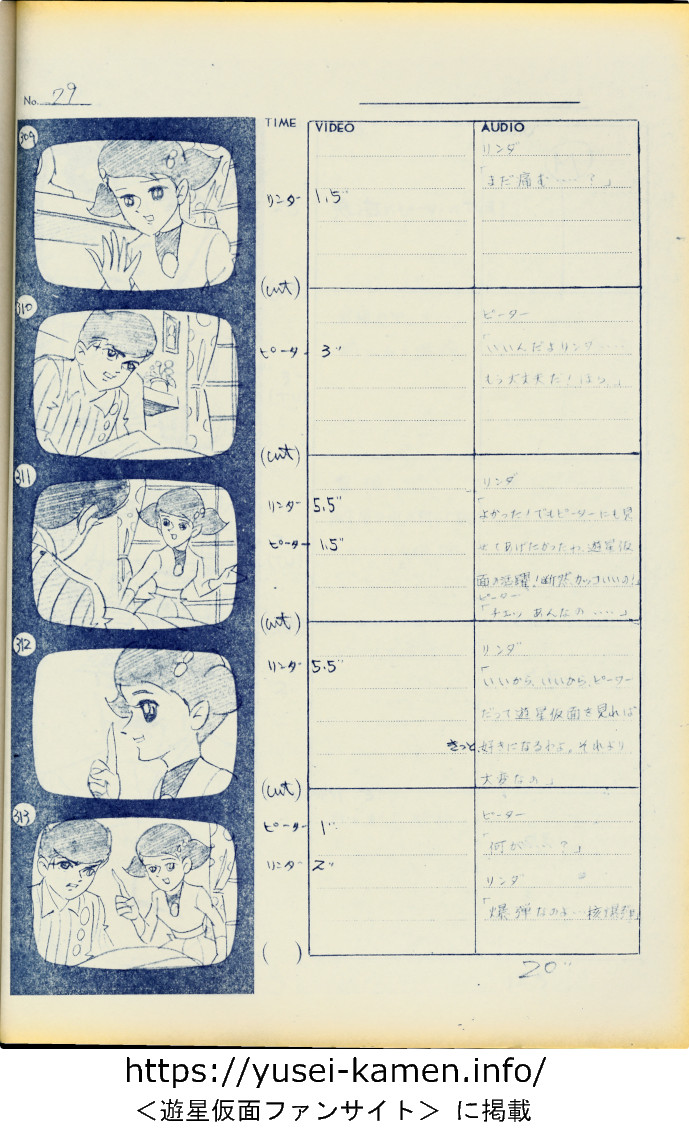 No. 29
TIME VIDEO AUDIO
309
リンダ
「まだ痛む……?」
リンダー 1.5"
(cut)
310
ピーター
「いいんだよリンダ……
もう大丈夫だ!ほら。」
ピーター 3"
(cut)
311
リンダ
「
よかった!でもピーターにも見
せてあげたかったわ、遊星仮
面の活躍!断然カッコいいの!」
ピーター
「チェッ あんなの……」
リンダー 5.5"
ピーター 1.5"
(cut)
312
リンダ
「
いいから、いいから、ピーター
だって遊星仮面を見れば
きっと好きになるわよ。それより
大変なの」
リンダー 5.5"
(cut)
313
ピーター
「何が……?」
リンダ
「爆弾なのよ…核爆弾」
ピーター 1"
リンダー 2"
( )
20"
https://yusei-kamen.info/
<遊星仮面ファンサイト> に掲載